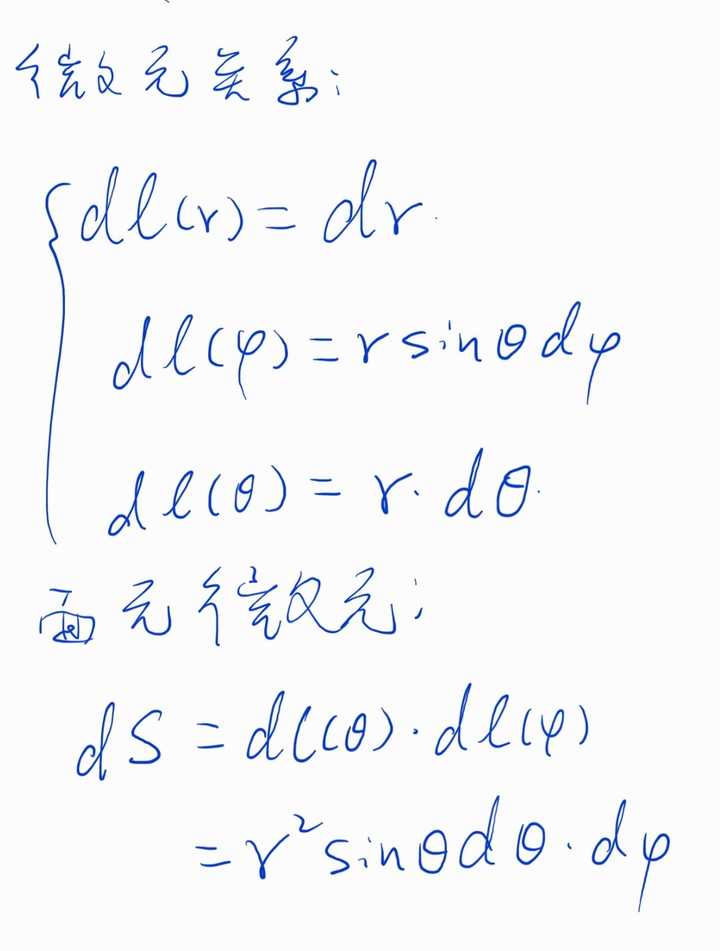 微元关系:
dl(r)=dr.
dl(φ)=rsinθdφ
dl(θ)=r·dθ.
面元微元:
dS=dl(θ)·dl(φ)
=r²sinθdθ·dφ